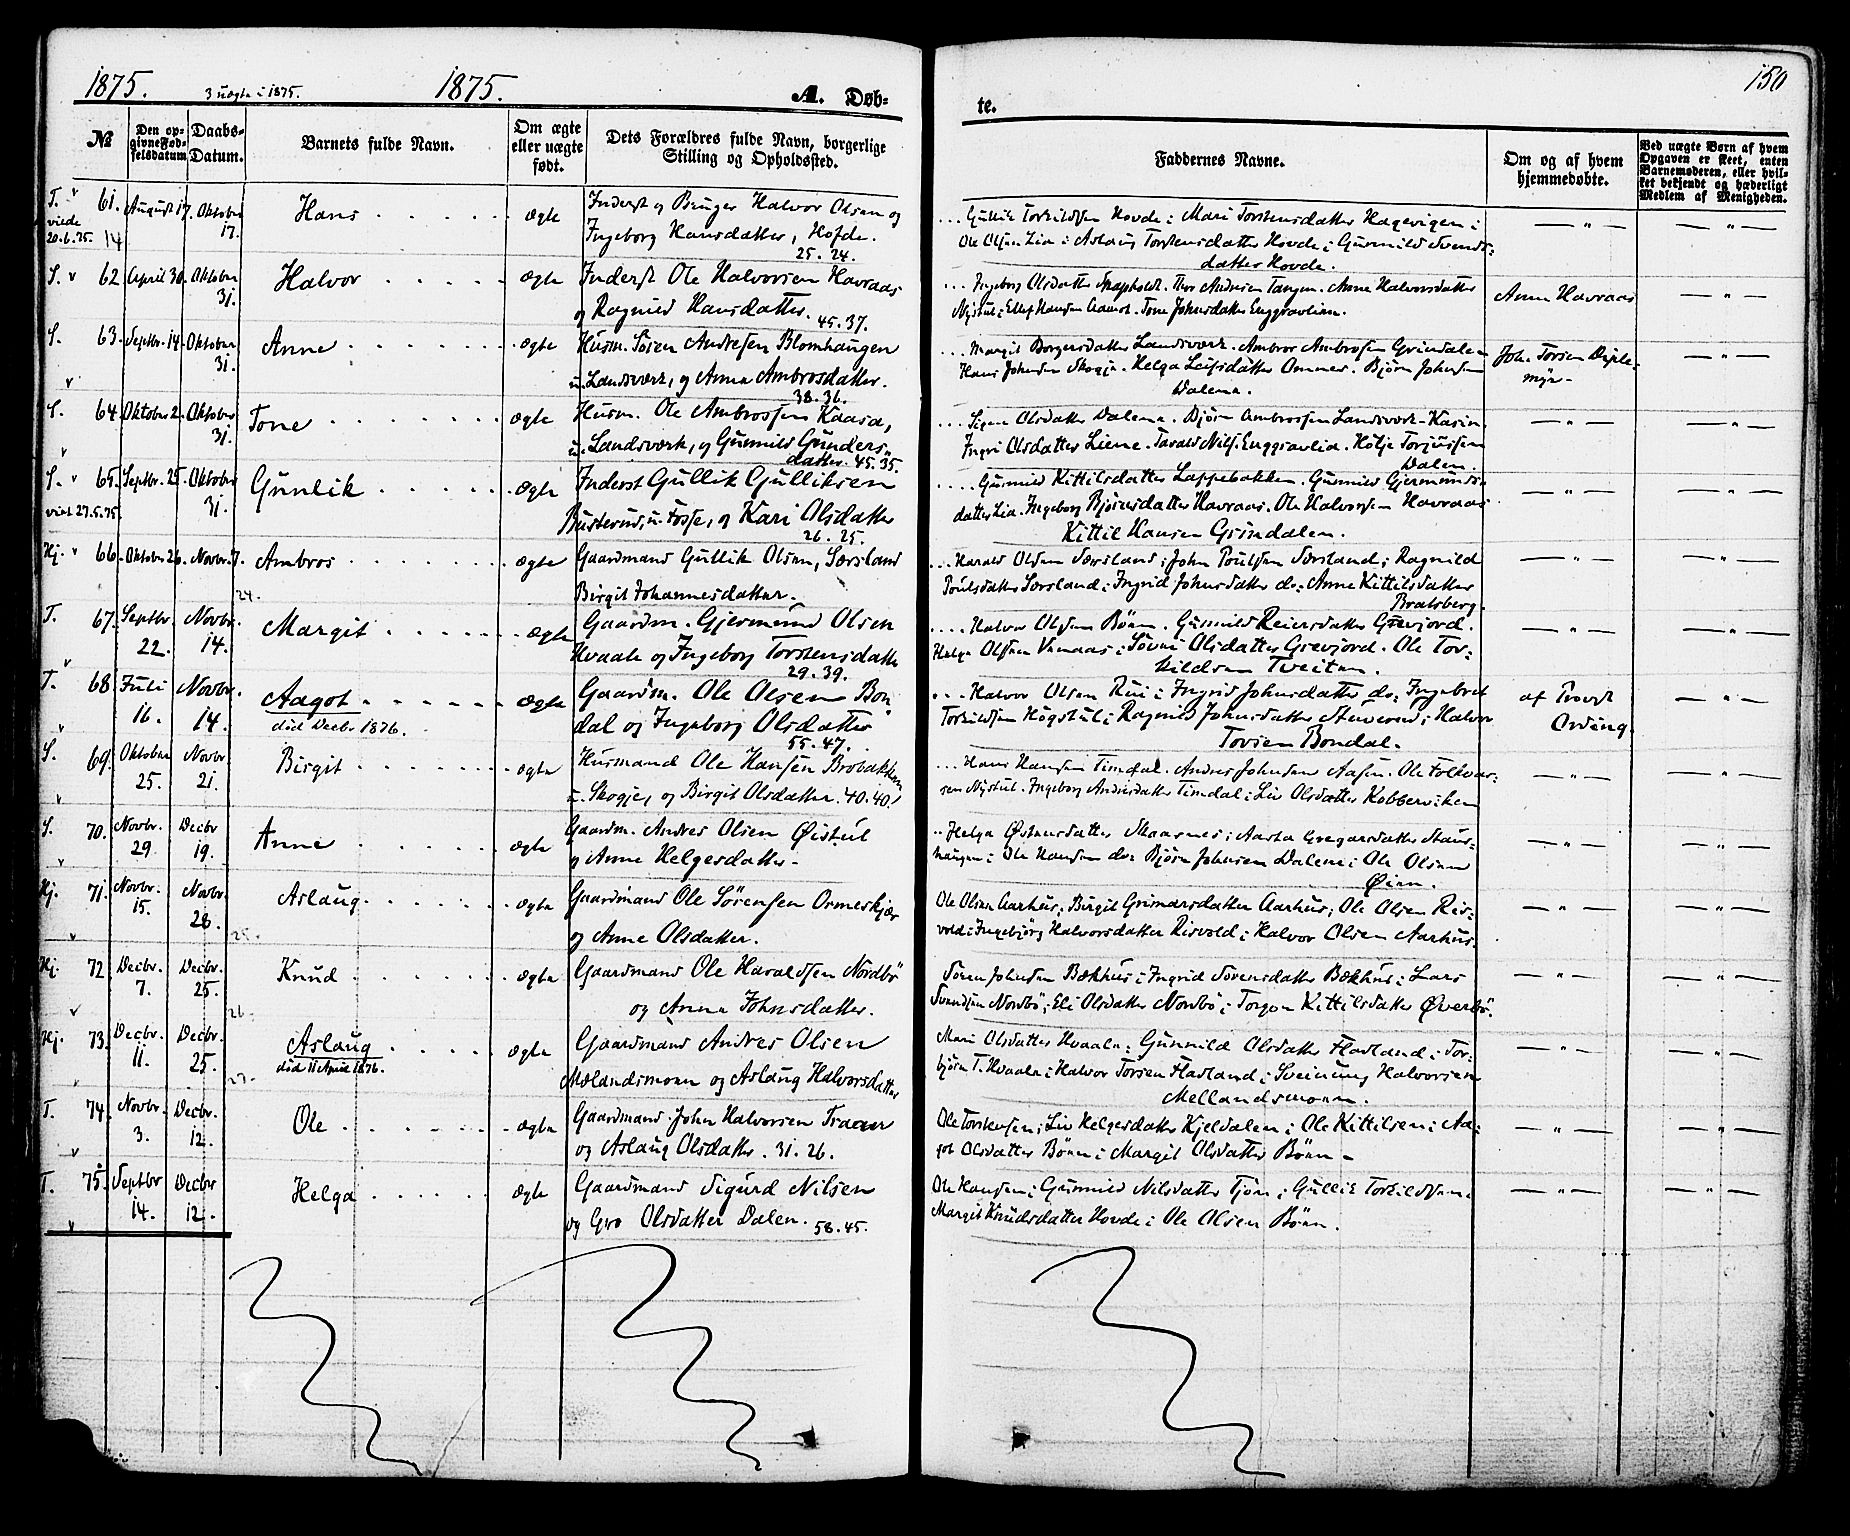 1875. 3 uægte i 1875. 1875. A. Døb-
te. 150
№ Den op-givne Fød-selsdatum Daabs-Datum. Barnets fulde Navn. Om ægte eller uægte født. Dets Forældres fulde Navn, borgerlige Stilling og Opholdssted.
Faddernes Navne. Om og af hvem hjemmedøbte. Ved uægte Børn af hvem Opgaven er skeet, enten Barnemoderen, eller hvil-ket bekjendt og hæderligt Medlem af Menigheden.
T. v 61. August 17. Oktober 17. Hans ægte Inderst og Bruger Halvor Olsen og
viede 20.6.75. 14 Ingeborg Hansdatter, Hofde. 25. 24.
Gullik Torkildsen Hovde; Mari Torstensdatter Hagevigen;
Ole Olsen Lia; Aslaug Torstensdatter Hovde; Gunnild Svends-
datter Hovde.
S. v 62 April 30. Oktober 31. Halvor ægte Inderst Ole Halvorsen Havraas
og Ragnild Hansdatter. 45. 37.
Ingeborg Olsdatter Skapholdt. Thor Andresen Tangen. Anne Halvorsdatter
Nystul; Ellef Hansen. Tone Johnsdatter Enggravlien.
Anne Havraas
S. v 63. Septbr. 14. Oktober 31. Anne ægte Husm. Søren Andresen Blomhaugen
u. Landsværk, og Anne Ambrosdatter. 38. 36.
Margit Borgersdatter Landsværk. Ambros Ambrosen Grindalen
Hans Johnsen Skogje. Helga Leifsdatter Ommes. Bjørn Johnsen
Dalene.
Joh. Torsen Diple-
myr.
S. v 64. Oktober 2. Oktober 31. Tone ægte Husm. Ole Ambrossen Kaasa,
u. Landsværk, og Gunnild Gunders-
datter. 45. 35.
Signe Olsdatter Dalene. Bjørn Ambrossen Landsværk. Karin
Ingri Olsdatter Liene. Tarald Nils. Enggravlid. Hølje Torjussen
Dalen.
S. v 65. Septbr. 25. Oktober 31. Gunlik ægte Inderst Gullik Gulliksen
viet 27.5.75. Busterud, u. Fosse, og Kari Olsdatter 26. 25.
Gunnild Kittilsdatter Lappebakken. Gunnild Gjermunds-
datter Lia. Ingeborg Bjørnsdatter Havraas. Ole Halvorsen Havraas
Kittil Hansen Grindalen.
Hj. v 66. Oktober 26. Novbr. 7. Ambros ægte Gaardmand Gullik Olsen, Sørsland
24. Birgit Johannesdatter.
Harald Olsen Sørsland; John Poulsen Sørsland; Ragnild
Poulsdatter Sørsland; Ingrid Johnsdatter do; Anne Kittilsdatter
Bratsberg.
T. v 67. Septbr. 22. Novbr. 14. Margit ægte Gaardm. Gjermund Olsen
Hvaale og Ingeborg Torstensdatter 29. 39.
Halvor Olsen Bønn. Gunnild Reiersdatter Grevjord.
Helge Olsen Venaas; Søvni Olsdatter Grevjord. Ole Tor-
kildsen Tveiten.
T. v 68. Juli 16. Novbr. 14. Aagot ægte Gaardm. Ole Olsen Bon-
død Decbr 1876. dal og Ingeborg Olsdatter 55. 47.
Halvor Olsen Rui; Ingrid Johnsdatter do; Ingebret
Torkildsen Høgstul; Ragnild Johnsdatter; Halvor
Torsen Bondal.
af Provst
Ording.
S. v 69. Oktober 25. Novbr. 21. Birgit ægte Husmand Ole Hansen Brobakken
u. Skogje, og Birgit Olsdatter. 40. 40.
Hans Hansen Timdal. Andres Johnsen Aasen. Ole Folkvar-
sen Nystul. Ingeborg Andresdatter Timdal; Liv Olsdatter Kobberviken
S. v 70. Novbr. 29 Decbr 19. Anne ægte Gaardm. Andres Olsen Øistul
og Anne Helgesdatter.
Helga Østensdatter Skaarnes; Aasta Gregarsdatter Staus-
haugen; Ole Hansen do; Bjørn Johnsen Dalene; Ole Olsen
Øien.
Hj. v 71. Novbr. 15. Novbr. 28. Aslaug ægte Gaardmand Ole Sørensen Ormeskjær
25. og Anne Olsdatter.
Ole Olsen Aarhus; Birgit Grimarsdatter Aarhus; Ole Olsen Ris-
vold; Ingebjørg Halvorsdatter Risvold; Halvor Olsen Aarhus.
Hj. v 72. Decbr. 7. Decbr. 25. Knud ægte Gaardmand Ole Haraldsen Nordbø
26. og Anne Johnsdatter.
Søren Johnsen Bækhus; Ingrid Sørensdatter Bækhus; Lars
Svendsen Nordbø; Eli Olsdatter Nordbø; Torgon Kittilsdatter Øverbø.
Hj. v 73. Decbr. 11. Decbr. 25. Aslaug ægte Gaardmand Andres Olsen
død 11 April 1876. 27. Mælandsmoen og Aslaug Halvorsdatter
Mari Olsdatter Hvaale; Gunnild Olsdatter Fladland; Tor-
bjørn T. Hvaale; Halvor Torsen Fladland; Sveinung Halvorsen
Mellandsmoen.
T. v 74. Novbr. 3. Decbr. 12. Ole ægte Gaardmand John Halvorsen Traaer
og Aslaug Olsdatter. 31. 26.
Ole Torstensen; Liv Helgesdatter Kjeldalen; Ole Kittilsen; Aa-
got Olsdatter Bønn; Margit Olsdatter Bønn
T. v 75. Septbr 14. Decbr 12. Helga ægte Gaardmand Sigurd Nilsen
og Gro Olsdatter Dalen. 58. 45.
Ole Hansen; Gunnild Nilsdatter Tjøn; Gullik Torkildsen;
Margit Knudsdatter Hovde; Ole Olsen Bønn.